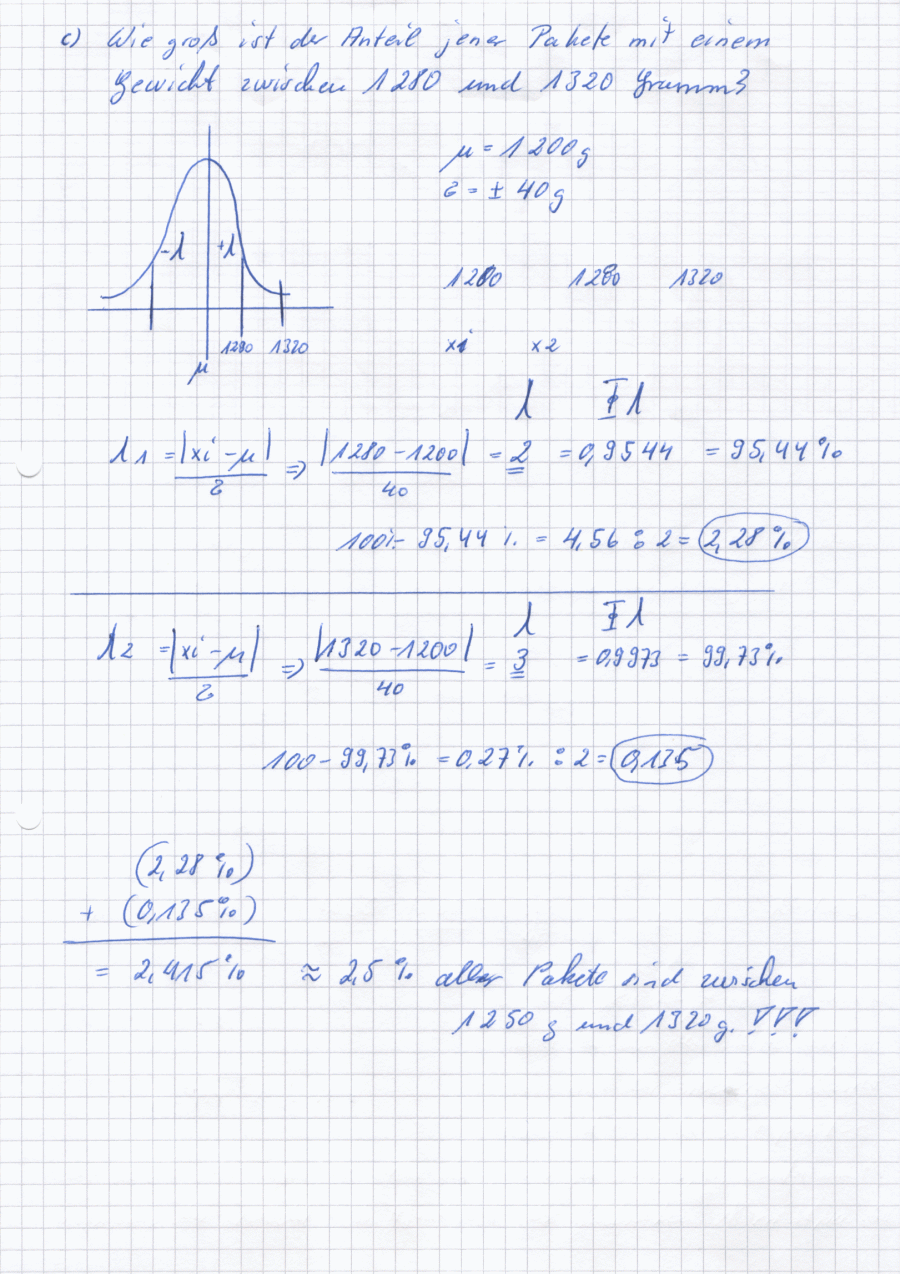 c) Wie groß ist der Anteil jener Pakete mit einem
Gewicht zwischen 1280 und 1320 Gramm?
μ = 1200g
σ = ± 40g
-λ +λ
1200 1280 1320
1280 1320
μ
xi x2
λ Φλ
λ1 = |xi - μ| / σ => |1280 - 1200| / 40 = 2 = 0,9544 = 95,44%
100% - 95,44% = 4,56 : 2 = 2,28%
λ Φλ
λ2 = |xi - μ| / σ => |1320 - 1200| / 40 = 3 = 0,9973 = 99,73%
100 - 99,73% = 0,27% : 2 = 0,135
(2,28%)
+ (0,135%)
= 2,415% ≈ 2,5% aller Pakete sind zwischen
1250 g und 1320 g. !!!